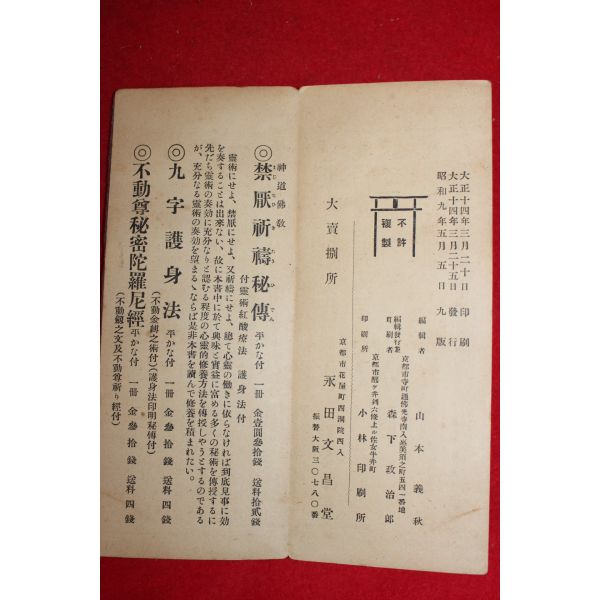 大正十四年三月二十日印刷
大正十四年三月二十五日發行
昭和九年五月五日九版
不許
複製
編輯者 山本義秋
京都市寺町通佛光寺南入恵美須之町五四一番地
編輯發行兼印刷者 森下政治郎
京都市醒ヶ井通六條上ル佐女牛井町
印刷所 小林印刷所
大賣捌所
京都市花屋町西洞院西入
永田文昌堂
振替大阪三〇七八〇番
神道佛教
◎禁厭祈禱秘傳 平かな付 一册 金壹圓參拾錢 送料拾貳錢
付靈術紅酸療法 護身法付
靈術にせよ、禁厭にせよ、又祈禱にせよ、總て心靈の働きに依らなければ到底見事に効
を奏することは出來ない、故に本書中に於て興味と實益に富める多くの秘術を傳授するに
先だち靈術の奏効に充分なりと認むる程度の心靈的修養方法を傳授しやうとするのである
が、充分なる靈術の奏効を望まるゝならば是非本書を讀んで修養を積まれたい。
◎九字護身法 平かな付 一册 金參拾錢 送料四錢
(不動金縛之術付)(護身法印明秘傳付)
◎不動尊秘密陀羅尼經 平かな付 一册 金參拾錢 送料四錢
(不動鏡之文及不動尊祈り經付)